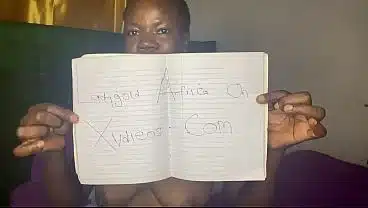 Africa On
Xvideos. Com